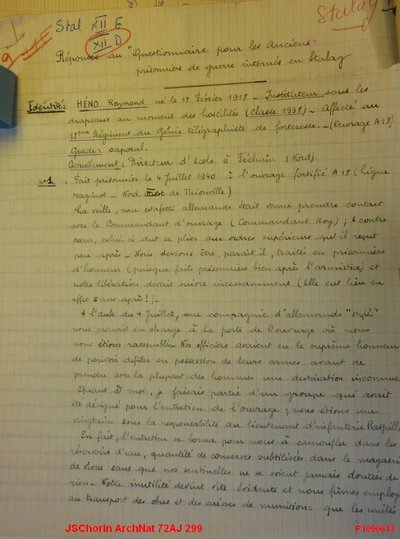 Stal XII E
XII D
Stalag
Réponses au "Questionnaire pour les Anciens
prisonniers de guerre internés en Stalag
Identité: HÉNO Raymond né le 17 Février 1918 - Instituteur sous les
drapeaux au moment des hostilités (Classe 1938) - Affecté au
18ème Régiment du Génie télégraphiste de forteresse - (Ouvrage A 18)
Grade: caporal.
Actuellement: Directeur d'École à Féchain (Nord).
N°1: Fait prisonnier le 4 Juillet 1940 à l'ouvrage fortifié A 18 (ligne
Maginot - Nord. Est de Thionville)
La veille, une estafette allemande était venue prendre contact
avec le Commandant d'ouvrage (Commandant Roy); à contre
cœur, celui ci dut se plier aux ordres supérieurs qu'il reçut
peu après - Nous devions être, paraît il, traités en prisonniers
d'honneur (puisque faits prisonniers bien après l'armistice) et
notre libération devait suivre incessamment (Elle eut lieu en
effet 5 ans après!) -
À l'aube du 4 Juillet, une compagnie d'allemands "stylés"
nous prenait en charge à la porte de l'ouvrage où nous
nous étions rassemblés. Nos officiers avaient eu le suprême honneur
de pouvoir défiler en possession de leurs armes avant de
prendre avec la plupart des hommes une destination inconnue
Quant à moi, je faisais partie d'un groupe qui avait
été désigné pour l'entretien de l'ouvrage; nous étions une
vingtaine sous la responsabilité du lieutenant d'infanterie
En fait, l'entretien se borna pour nous à camoufler dans les
réservoirs d'eau, quantité de conserves subtilisées dans le magasin
de vivres sans que nos sentinelles ne se soient jamais doutées de
rien - Notre inutilité devint vite évidente et nous fûmes employés
au transport des obus et des caisses de munitions que les unités
JSChorin ArchNat 72AJ 299
P1090613